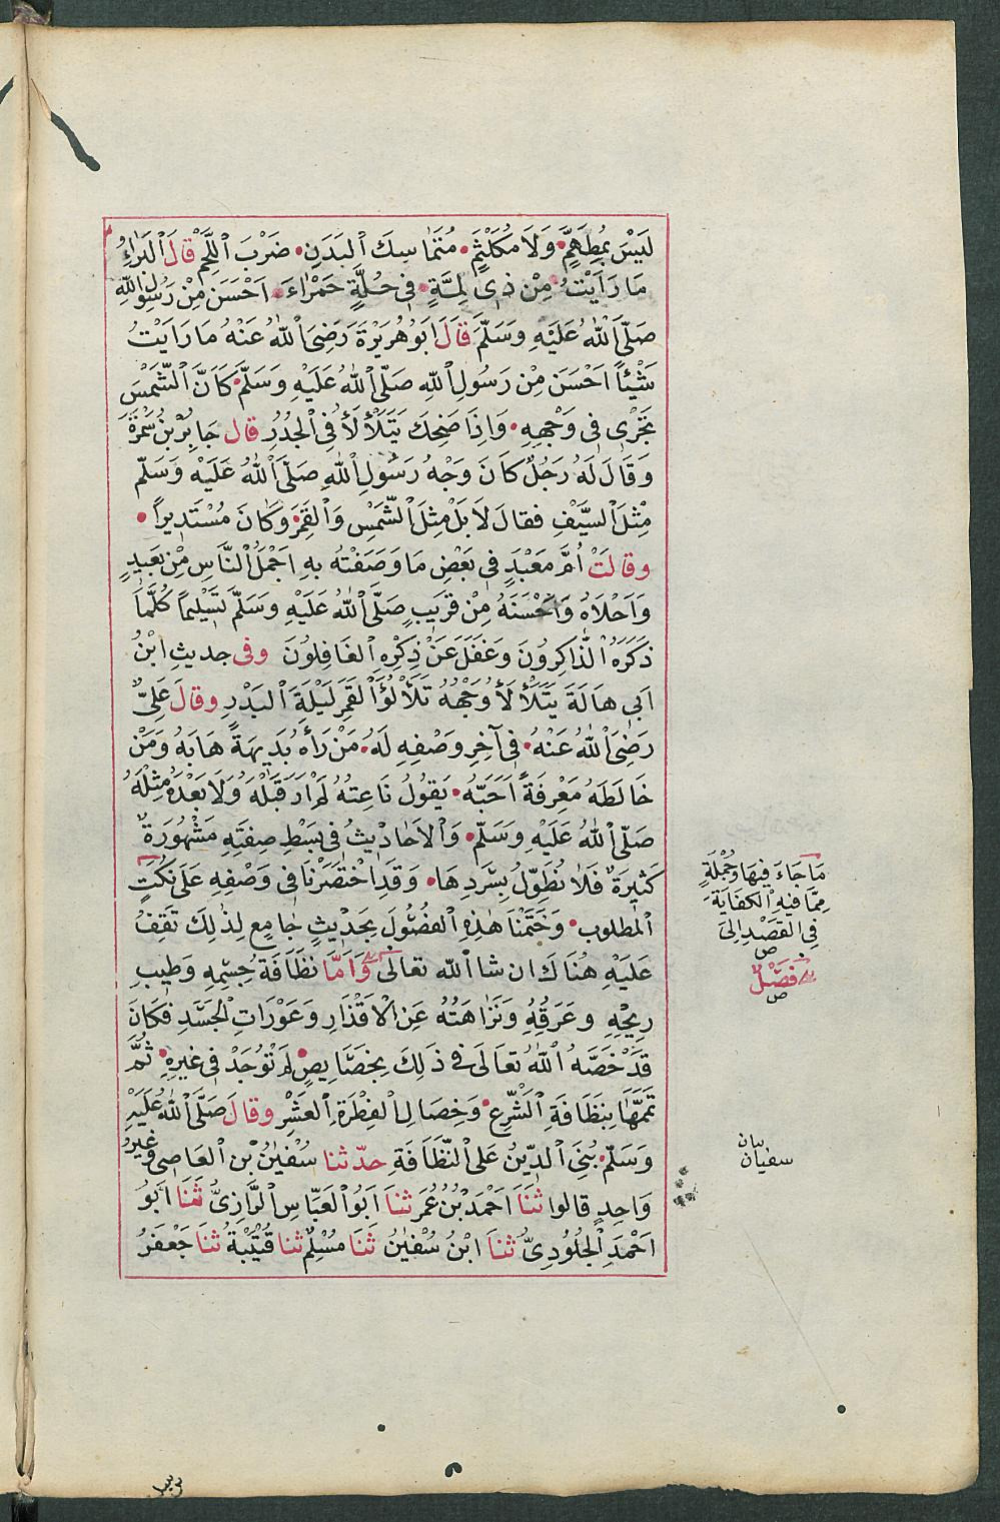 لَيْسَ بِمُطَهَّمٍ وَلَا مُكَلْثَمٍ مُتَمَاسِكَ الْبَدَنِ ضَرْبَ اللَّحْمِ قَالَ الْبَرَاءُ
مَا رَاَيْتُ مِنْ ذِى لِمَّةٍ فِى حُلَّةٍ حَمْرَاءَ اَحْسَنَ مِنْ رَسُولِ اللهِ
صَلَّى اللهُ عَلَيْهِ وَسَلَّمَ قَالَ اَبُو هُرَيْرَةَ رَضِىَ اللهُ عَنْهُ مَا رَاَيْتُ
شَيْئًا اَحْسَنَ مِنْ رَسُولِ اللهِ صَلَّى اللهُ عَلَيْهِ وَسَلَّمَ كَاَنَّ الشَّمْسَ
تَجْرِى فِى وَجْهِهِ وَاِذَا ضَحِكَ يَتَلَأْلَأُ فِى الْجُدُرِ قال جَابِرُ بْنُ سَمُرَةَ
وَقَالَ لَهُ رَجُلٌ كَانَ وَجْهُ رَسُولِ اللهِ صَلَّى اللهُ عَلَيْهِ وَسَلَّم
مِثْلَ السَّيْفِ فقالَ لَا بَلْ مِثْلَ الشَّمْسِ وَالْقَمَرِ وَكَانَ مُسْتَدِيرًا
وقالَتْ اُمُّ مَعْبَدٍ فِى بَعْضِ مَا وَصَفَتْهُ بِهِ اَجْمَلُ النَّاسِ مِنْ بَعِيدٍ
وَاَحْلَاهُ وَاَحْسَنُهُ مِنْ قَرِيبٍ صَلَّى اللهُ عَلَيْهِ وَسَلَّمَ تَسْلِيمًا كُلَّمَا
ذَكَرَهُ الذَّاكِرُونَ وَغَفَلَ عَنْ ذِكْرِهِ الْغَافِلُونَ وفى حديثِ ابْنُ
اَبِى هَالَةَ يَتَلَأْلَأُ وَجْهُهُ تَلَأْلُؤَ الْقَمَرِ لَيْلَةَ الْبَدْرِ وقالَ عَلِىٌّ
رَضِىَ اللهُ عَنْهُ فِى آخِرِ وَصْفِهِ لَهُ مَنْ رَاٰهُ بَدِيهَةً هَابَهُ وَمَنْ
خَالَطَهُ مَعْرِفَةً اَحَبَّهُ يَقُولُ نَاعِتُهُ لَمْ اَرَ قَبْلَهُ وَلَا بَعْدَهُ مِثْلَهُ
صَلَّى اللهُ عَلَيْهِ وَسَلَّمَ وَالْاَحَادِيثُ فِى بَسْطِ صِفَتِهِ مَشْهُورَةٌ
كَثِيرَةٌ فَلَا نُطَوِّلُ بِسَرْدِهَا وَقَدِ اخْتَصَرْنَا فِى وَصْفِهِ عَلَى نُكَتِ
الْمَطلوب وَخَتَمْنَا هٰذِهِ الْفُصُولَ بِحَدِيثٍ جَامِعٍ لِذٰلِكَ تَقِفُ
عَلَيْهِ هُنَاكَ ان شا الله تعالى وَاَمَّا نَظَافَةُ جِسْمِهِ وَطِيبِ
رِيحِهِ وَعَرَقِهِ وَنَزَاهَتُهُ عَنِ الْاَقْذَارِ وَعَوْرَاتِ الْجَسَدِ فَكَانَ
قَدْ خَصَّهُ اللهُ تَعَالَى فِى ذَلِكَ بِخَصَايِصٍ لَمْ تُوجَدْ فِى غَيْرِهِ ثُمَّ
تَمَّمَهَا بِنَظَافَةِ الشَّرْعِ وَخِصَالِ الْفِطْرَةِ الْعَشْرِ وقالَ صَلَّى اللهُ عَلَيْهِ
وَسَلَّمَ بُنِىَ الدِّينُ عَلَى النَّظَافَةِ حدّثنا سُفْيٰنُ بْنُ الْعَاصِى وَغَيْرُ
وَاحِدٍ قالوا ثَنَا اَحْمَدُ بْنُ عُمَرَ ثنَا اَبُو الْعَبَّاسِ الرَّازِىُّ ثَنَا اَبُو
اَحْمَدَ الْجُلُودِىُّ ثنَا ابْنُ سُفْيٰنَ ثَنَا مُسْلِمٌ ثنا قُتَيْبَةُ ثنَا جَعْفَرُ
مَا جَاءَ فِيهَا وَجُمْلَةٍ
مِمَّا فِيهِ الْكَفَايَةَ
فِى الْقَصْدِ اِلَى
ص
فَصْلٌ
ص
بيان
سفيان